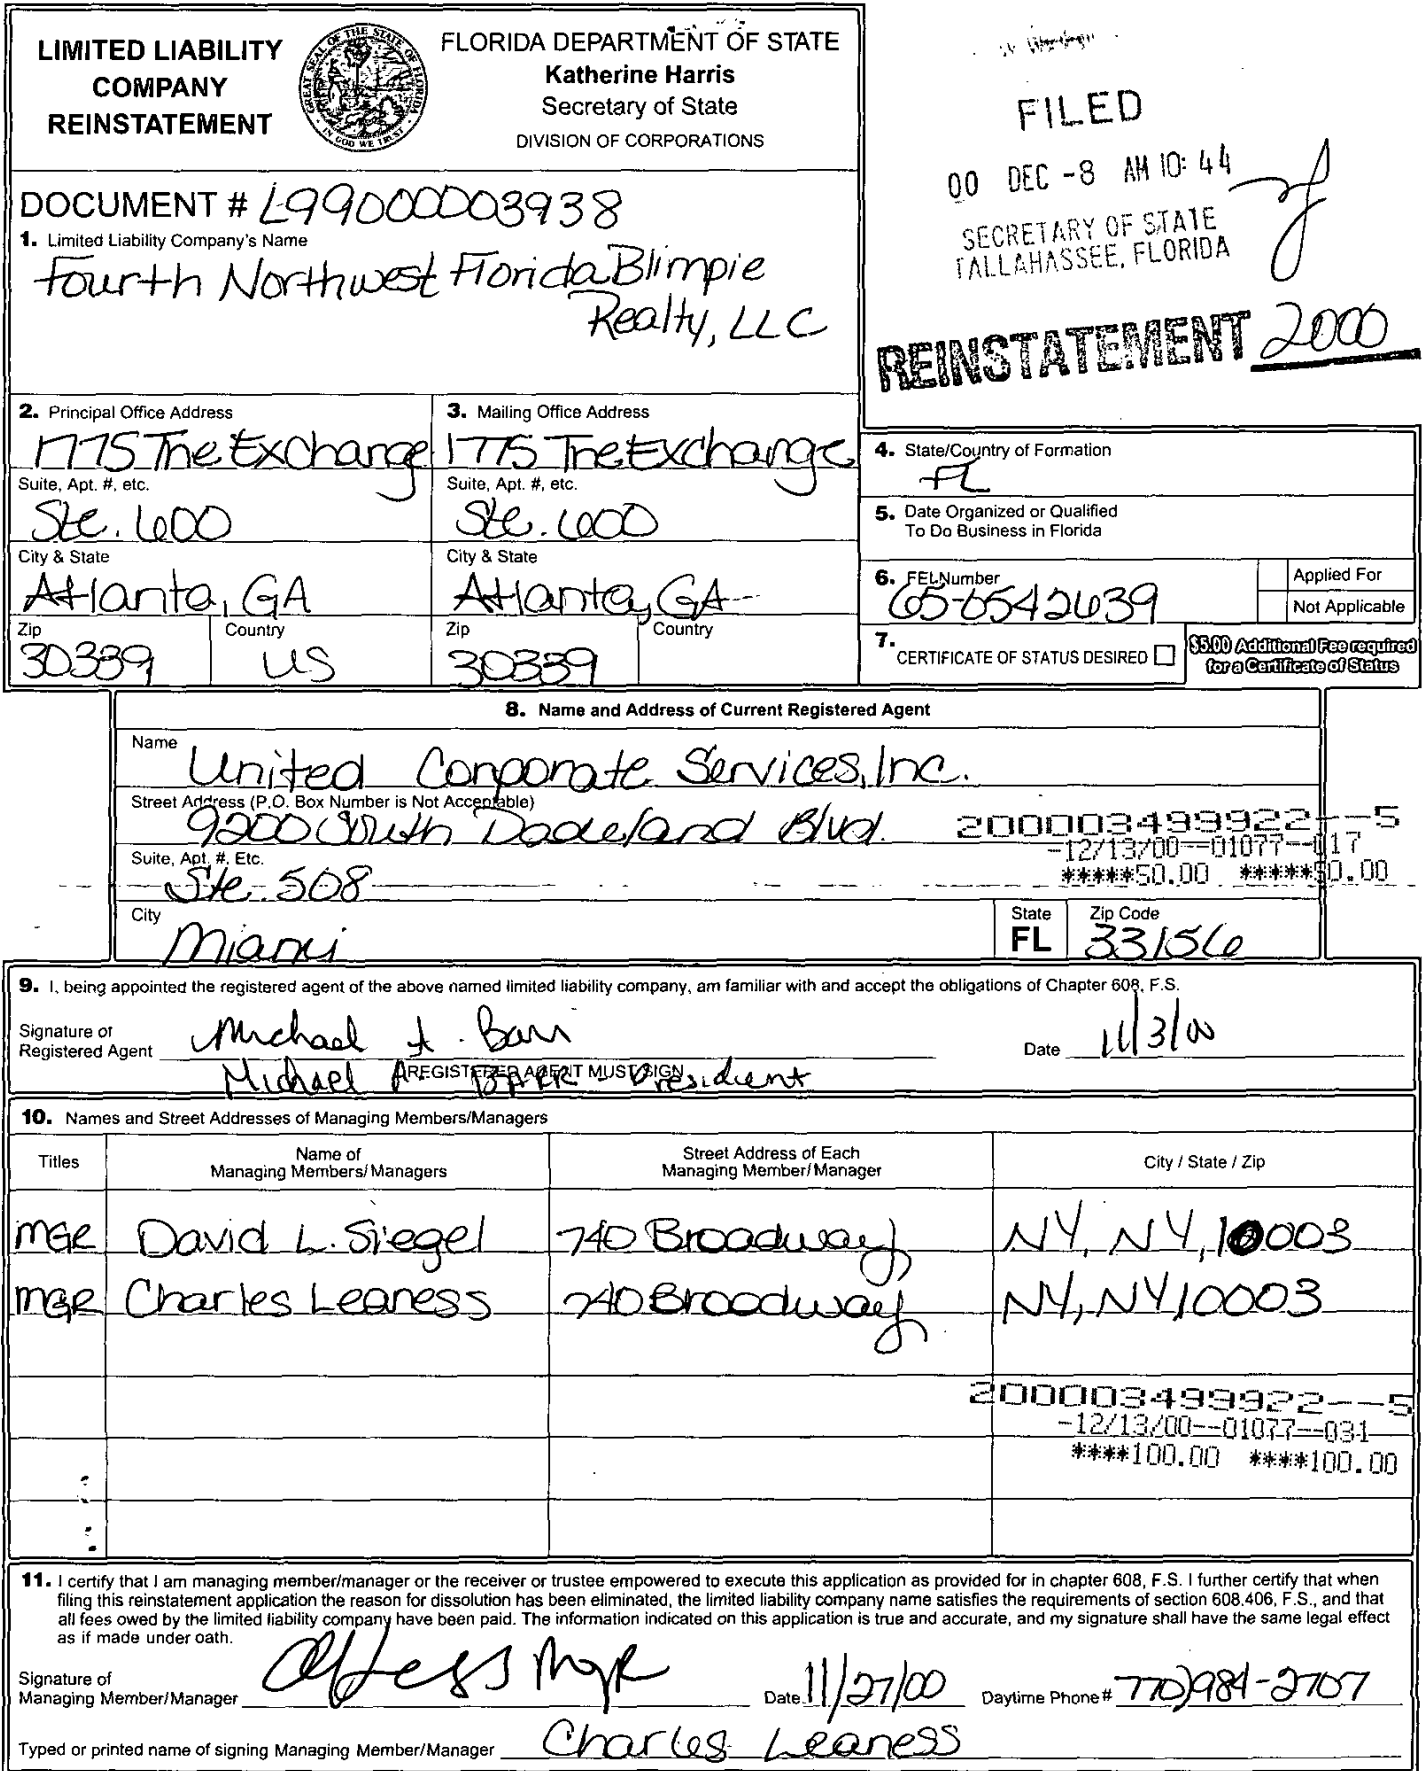 LIMITED LIABILITY
COMPANY
REINSTATEMENT
GREAT SEAL OF THE STATE OF FLORIDA
IN GOD WE TRUST
FLORIDA DEPARTMENT OF STATE
Katherine Harris
Secretary of State
DIVISION OF CORPORATIONS
FILED
00 DEC -8 AM 10:44
SECRETARY OF STATE
TALLAHASSEE, FLORIDA
REINSTATEMENT 2000
DOCUMENT # L99000003938
1. Limited Liability Company's Name
Fourth Northwest Florida Blimpie
Realty, LLC
2. Principal Office Address
1775 The Exchange
Suite, Apt. #, etc.
Ste. 600
City & State
Atlanta, GA
Zip
30339
Country
US
3. Mailing Office Address
1775 The Exchange
Suite, Apt. #, etc.
Ste. 600
City & State
Atlanta, GA
Zip
30339
Country
4. State/Country of Formation
FL
5. Date Organized or Qualified
To Do Business in Florida
6. FEI Number
65-0542639
Applied For
Not Applicable
7. CERTIFICATE OF STATUS DESIRED
$5.00 Additional Fee required
for a Certificate of Status
8. Name and Address of Current Registered Agent
Name
United Corporate Services, Inc.
Street Address (P.O. Box Number is Not Acceptable)
9200 South Dadeland Blvd.
Suite, Apt. #, Etc.
Ste. 508
200003499922--5
-12/13/00--01077--017
*****50.00 *****50.00
City
Miami
State
FL
Zip Code
33156
9. I, being appointed the registered agent of the above named limited liability company, am familiar with and accept the obligations of Chapter 608, F.S.
Signature of
Registered Agent
Michael A. Barr
Date 11/3/00
REGISTERED AGENT MUST SIGN
Michael A. BARR - President
10. Names and Street Addresses of Managing Members/Managers
Titles
Name of
Managing Members/Managers
Street Address of Each
Managing Member/Manager
City / State / Zip
MGR David L. Siegel 740 Broadway, NY, NY, 10003
MGR Charles Leaness 740 Broadway, NY, NY 10003
200003499922--5
-12/13/00--01077--031
****100.00 ****100.00
11. I certify that I am managing member/manager or the receiver or trustee empowered to execute this application as provided for in chapter 608, F.S. I further certify that when
filing this reinstatement application the reason for dissolution has been eliminated, the limited liability company name satisfies the requirements of section 608.406, F.S., and that
all fees owed by the limited liability company have been paid. The information indicated on this application is true and accurate, and my signature shall have the same legal effect
as if made under oath.
Signature of
Managing Member/Manager
MGR
Date 11/27/00
Daytime Phone # 770)984-2707
Typed or printed name of signing Managing Member/Manager Charles Leaness